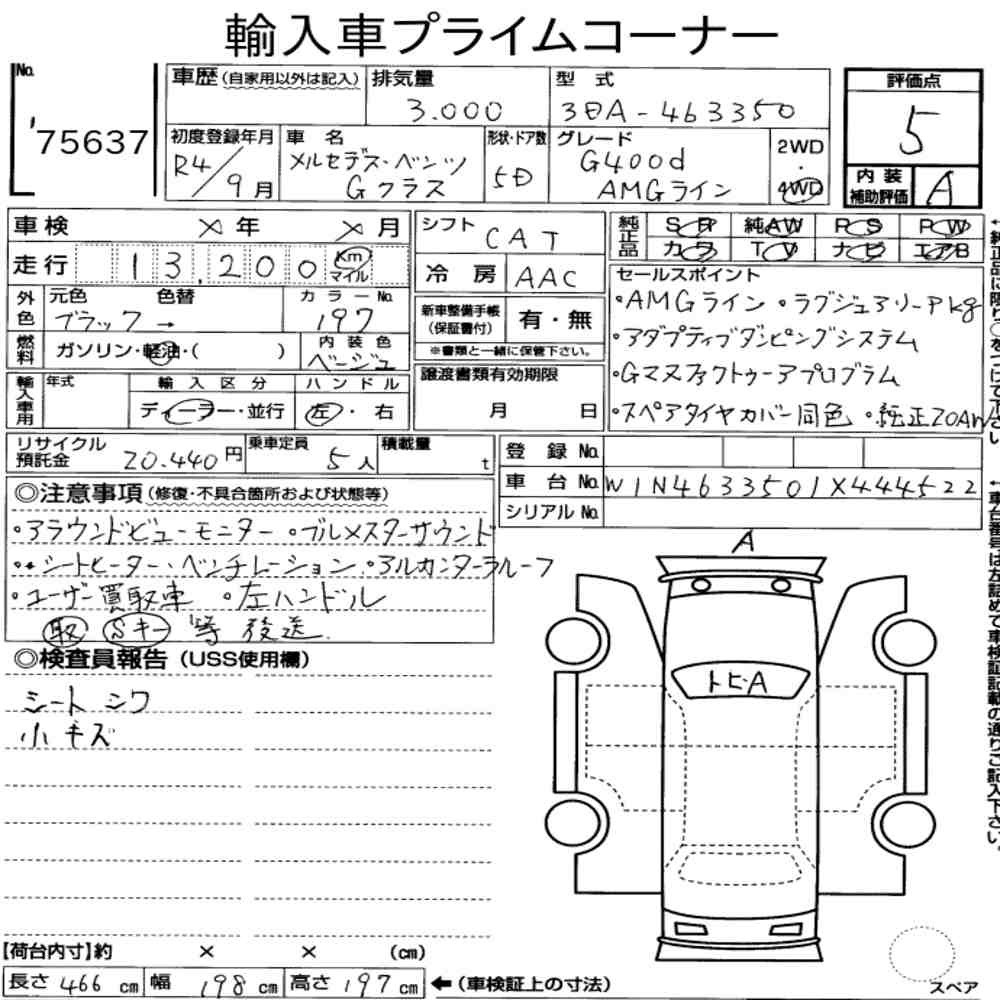 輸入車プライムコーナー
No. '75637
車歴 (自家用以外は記入)
排気量 3.000
型式 3DA-463350
評価点 5
内装補助評価 A
初度登録年月 R4/9月
車名 メルセデス・ベンツ Gクラス
形状・ドア数 5D
グレード G400d AMGライン
2WD・4WD
車検 ×年 ×月
走行 13,200 Km マイル
外色 元色 ブラック → 色替
カラーNo. 197
燃料 ガソリン・軽油・( )
内装色 ベージュ
輸入車用 年式
輸入区分 ディーラー・並行
ハンドル 左・右
シフト CAT
冷房 AAC
新車整備手帳(保証書付) 有・無
※書類と一緒に保管下さい。
譲渡書類有効期限 月 日
純正品 SR 純AW PS PW
カワ TV ナビ エアB
セールスポイント
・AMGライン ・ラグジュアリーPkg
・アダプティブダンピングシステム
・Gマヌファクトゥーアプログラム
・スペアタイヤカバー同色 ・純正20AW
←純正品に限り○をつけて下さい
リサイクル預託金 20.440円
乗車定員 5人
積載量 t
登録No.
車台No. W1N4633501X444522
シリアルNo.
←車台番号は左詰めで車検証記載の通りご記入下さい。
◎注意事項(修復・不具合箇所および状態等)
・アラウンドビューモニター ・ブルメスターサウンド
・シートヒーター・ベンチレーション ・アルカンターラルーフ
・ユーザー買取車 ・左ハンドル
取 Sキー 等 後送
◎検査員報告(USS使用欄)
シート シワ
小キズ
A
トビA
【荷台内寸】約 × × (cm)
長さ 466 cm 幅 198 cm 高さ 197 cm ←(車検証上の寸法)
スペア